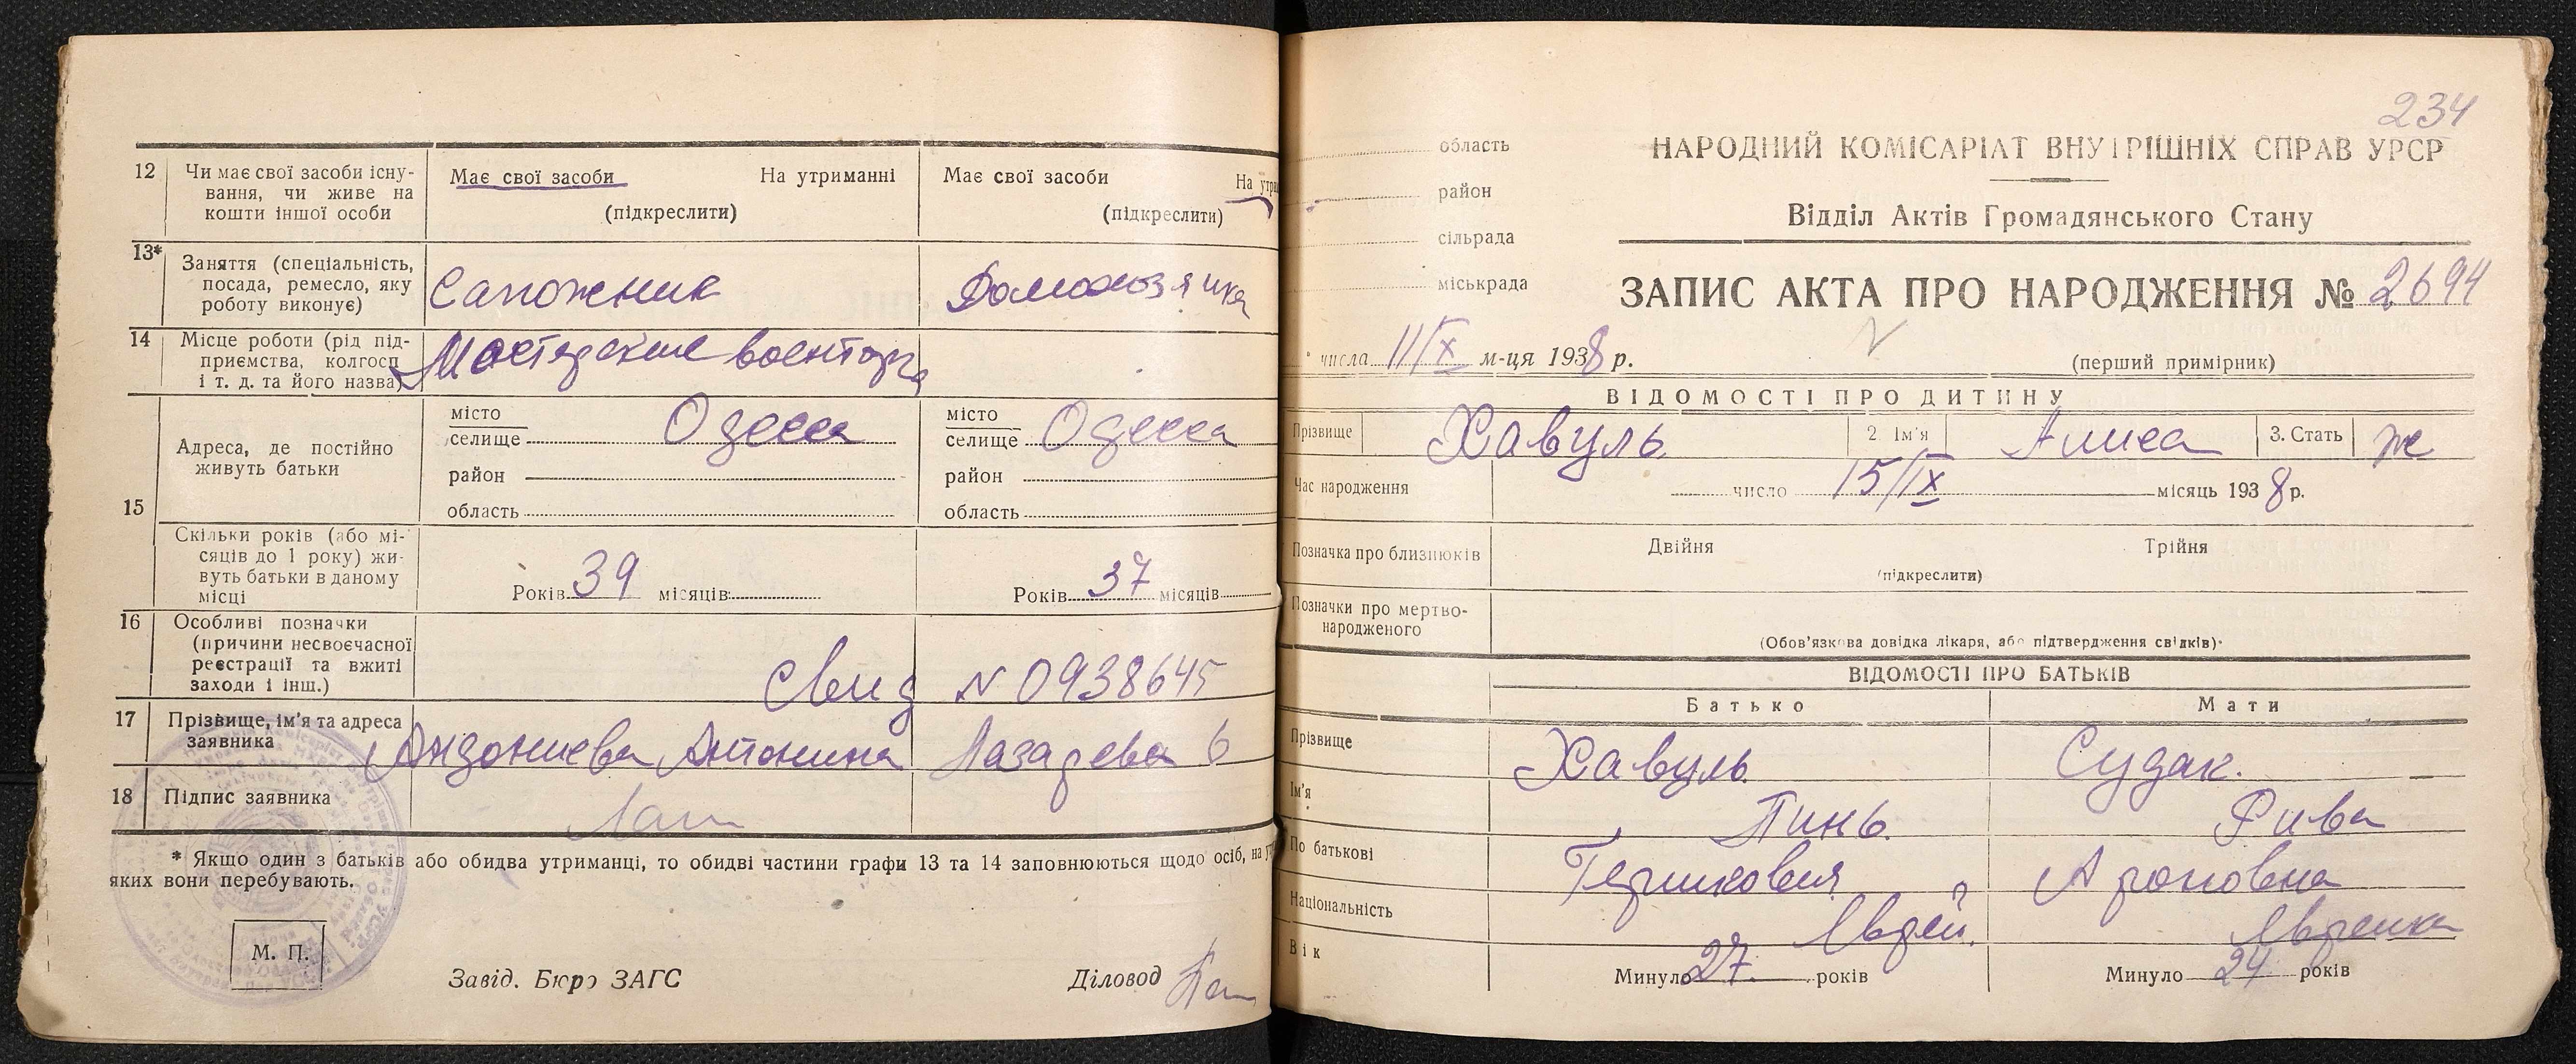 12 Чи має свої засоби існу-
вання, чи живе на
кошти іншої особи
Має свої засоби На утриманні
(підкреслити)
Має свої засоби На утри
(підкреслити)
13* Заняття (спеціальність,
посада, ремесло, яку
роботу виконує)
Сапожник
Домохозяйка
14 Місце роботи (рід під-
приємства, колгосп
і т. д. та його назва)
Мастерские военторга
15 Адреса, де постійно
живуть батьки
місто
селище Одесса
район
область
місто
селище Одесса
район
область
Скільки років (або мі-
сяців до 1 року) жи-
вуть батьки в даному
місці
Років 39 місяців
Років 37 місяців
16 Особливі позначки
(причини несвоєчасної
реєстрації та вжиті
заходи і інш.)
Свид N 0938645
17 Прізвище, ім'я та адреса
заявника
Андониева Антонина Лазарева 6
18 Підпис заявника
* Якщо один з батьків або обидва утриманці, то обидві частини графи 13 та 14 заповнюються щодо осіб, на
яких вони перебувають.
М. П.
Завід. Бюро ЗАГС Діловод
234
область
район
сільрада
міськрада
НАРОДНИЙ КОМІСАРІАТ ВНУТРІШНІХ СПРАВ УРСР
Відділ Актів Громадянського Стану
ЗАПИС АКТА ПРО НАРОДЖЕННЯ № 2694
числа 11/X м-ця 1938 р.
(перший примірник)
ВІДОМОСТІ ПРО ДИТИНУ
Прізвище Хавуль 2. Ім'я Алиса 3. Стать ж
Час народження число 15/IX місяць 1938 р.
Позначка про близнюків Двійня Трійня
(підкреслити)
Позначки про мертво-
народженого
(Обов'язкова довідка лікаря, або підтвердження свідків)
ВІДОМОСТІ ПРО БАТЬКІВ
Батько Мати
Прізвище Хавуль Судак.
Ім'я Пинь Рива
По батькові Гершкович Ароновна
Національність Еврей. Еврейка
Вік Минуло 27 років Минуло 24 років